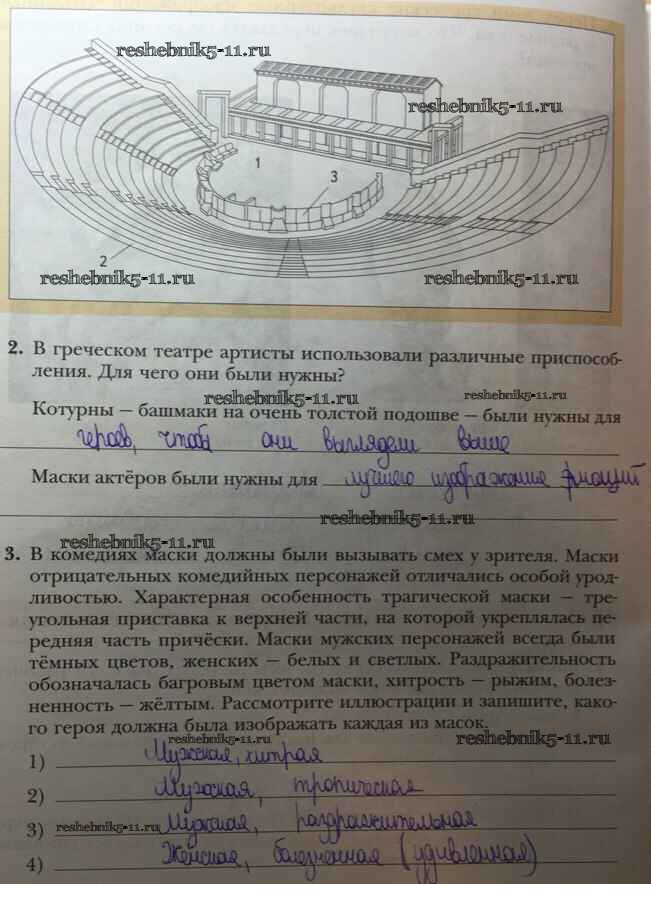 reshebnik5-11.ru
reshebnik5-11.ru
1
3
2
reshebnik5-11.ru
reshebnik5-11.ru
2. В греческом театре артисты использовали различные приспособ-
ления. Для чего они были нужны?
reshebnik5-11.ru
reshebnik5-11.ru
Котурны – башмаки на очень толстой подошве – были нужны для
героев, чтобы они выглядели выше
Маски актёров были нужны для лучшего изображения эмоций
reshebnik5-11.ru
reshebnik5-11.ru
3. В комедиях маски должны были вызывать смех у зрителя. Маски
отрицательных комедийных персонажей отличались особой урод-
ливостью. Характерная особенность трагической маски – тре-
угольная приставка к верхней части, на которой укреплялась пе-
редняя часть причёски. Маски мужских персонажей всегда были
тёмных цветов, женских – белых и светлых. Раздражительность
обозначалась багровым цветом маски, хитрость – рыжим, болез-
ненность – жёлтым. Рассмотрите иллюстрации и запишите, како-
го героя должна была изображать каждая из масок.
reshebnik5-11.ru
reshebnik5-11.ru
1) Мужская, хитрая
2) Мужская, трогическая
3) reshebnik5-11.ru Мужская, раздражительная
4) Женская, болезненная (удивленная)